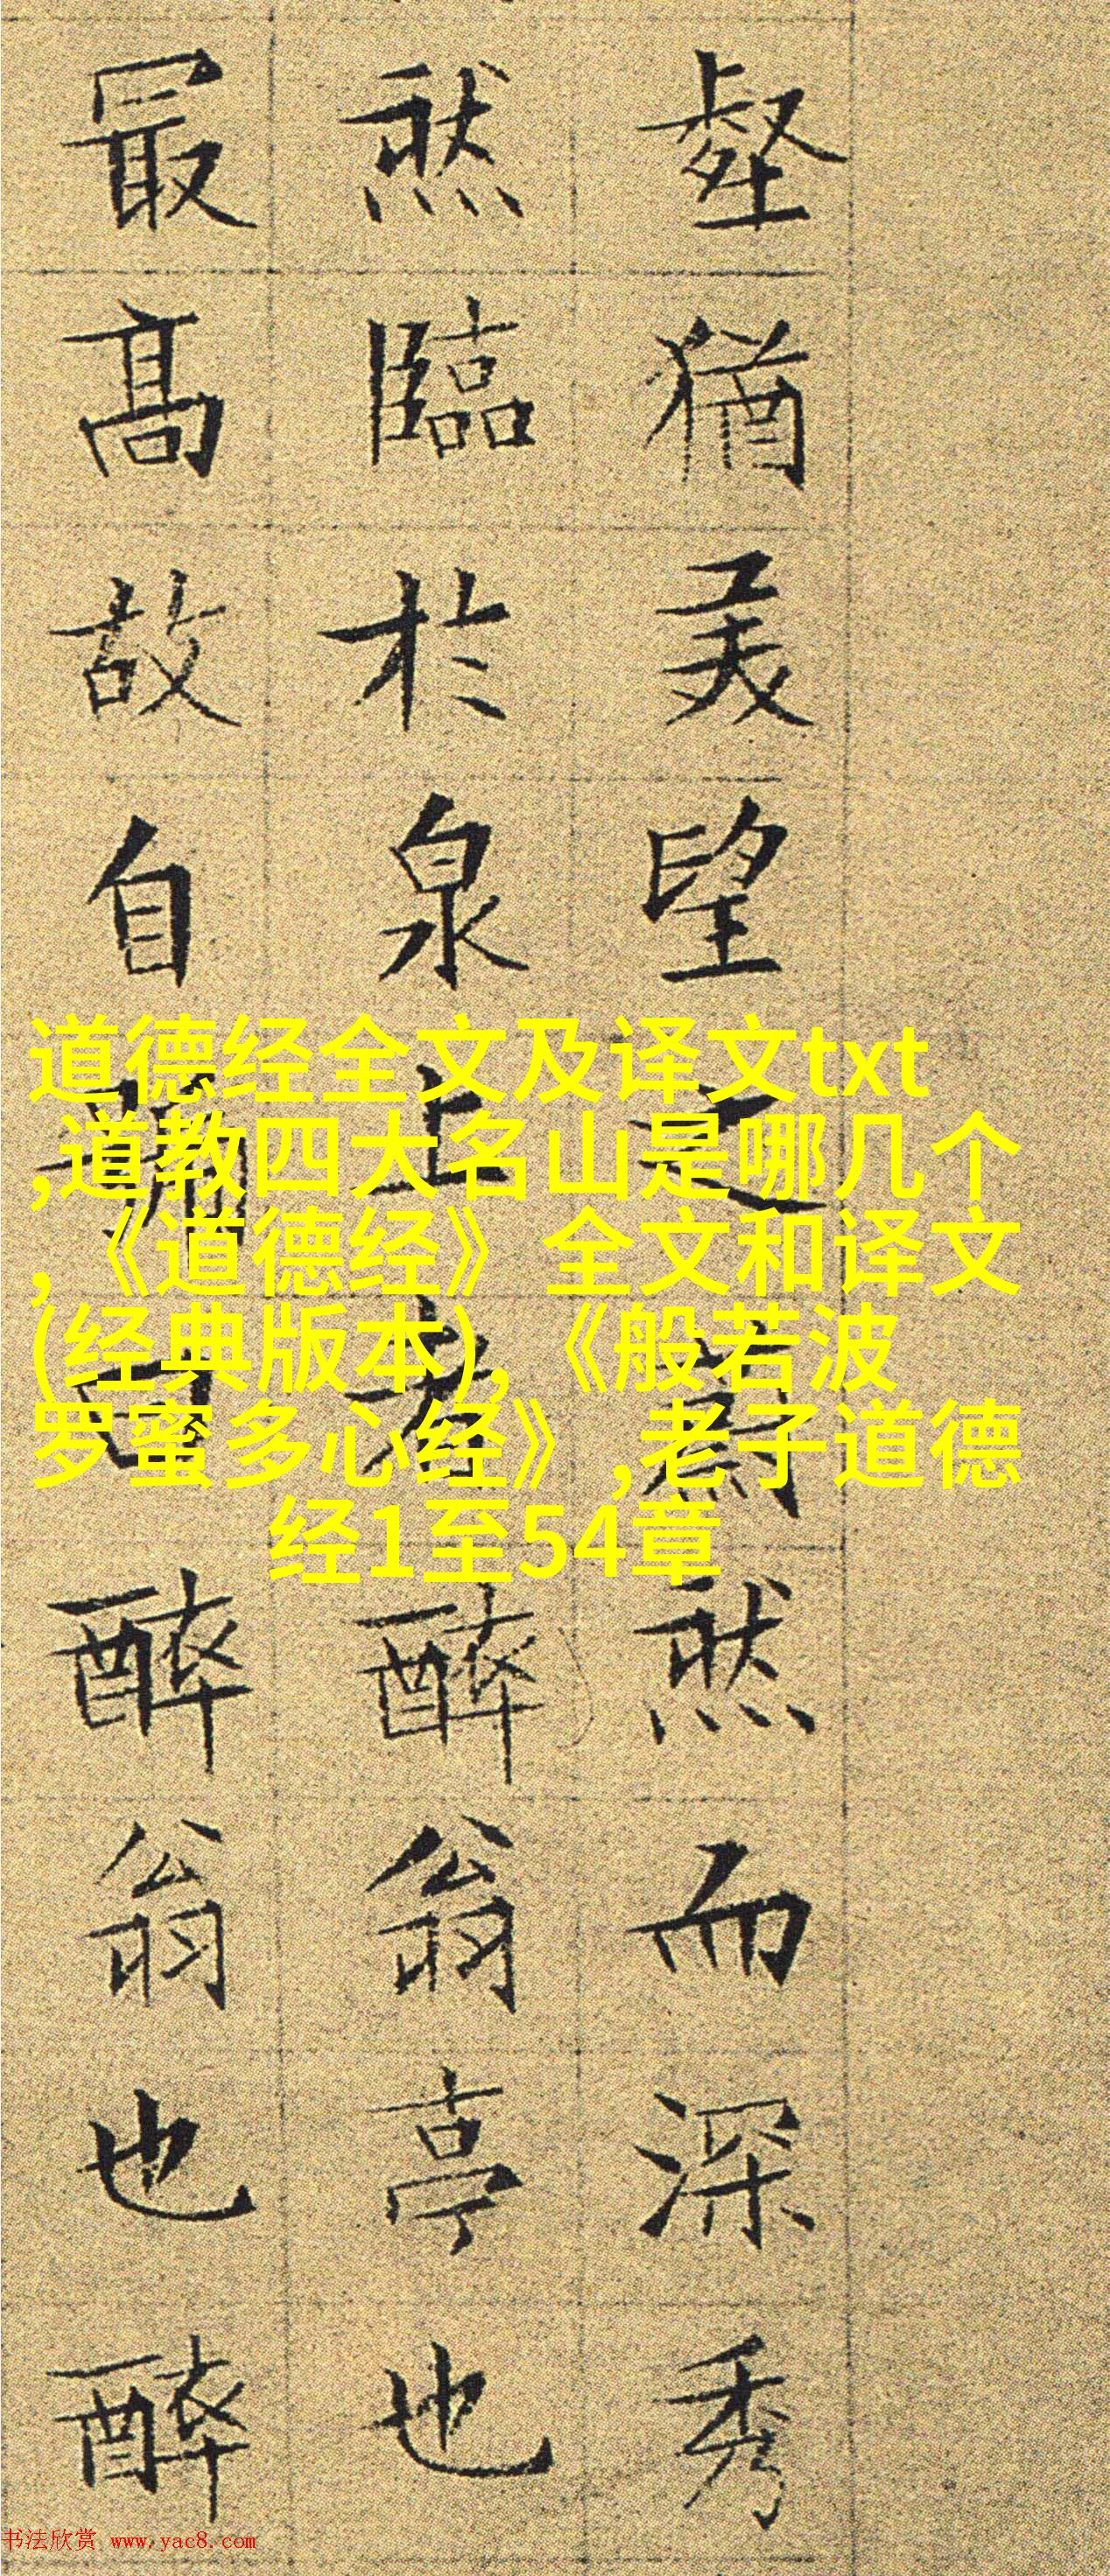 壑猶美望之蔚然而深秀
然臨於泉上者醉翁亭也
最高故自號曰醉翁也醉
道德经全文及译文txt
,道教四大名山是哪几个
,《道德经》全文和译文
(经典版本),《般若波
罗蜜多心经》,老子道德
经1至54章
书法欣赏 www.yac8.com